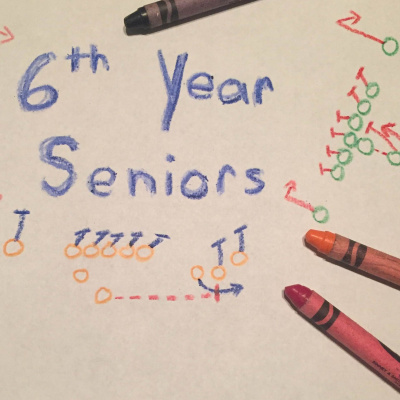 6th Year
Seniors